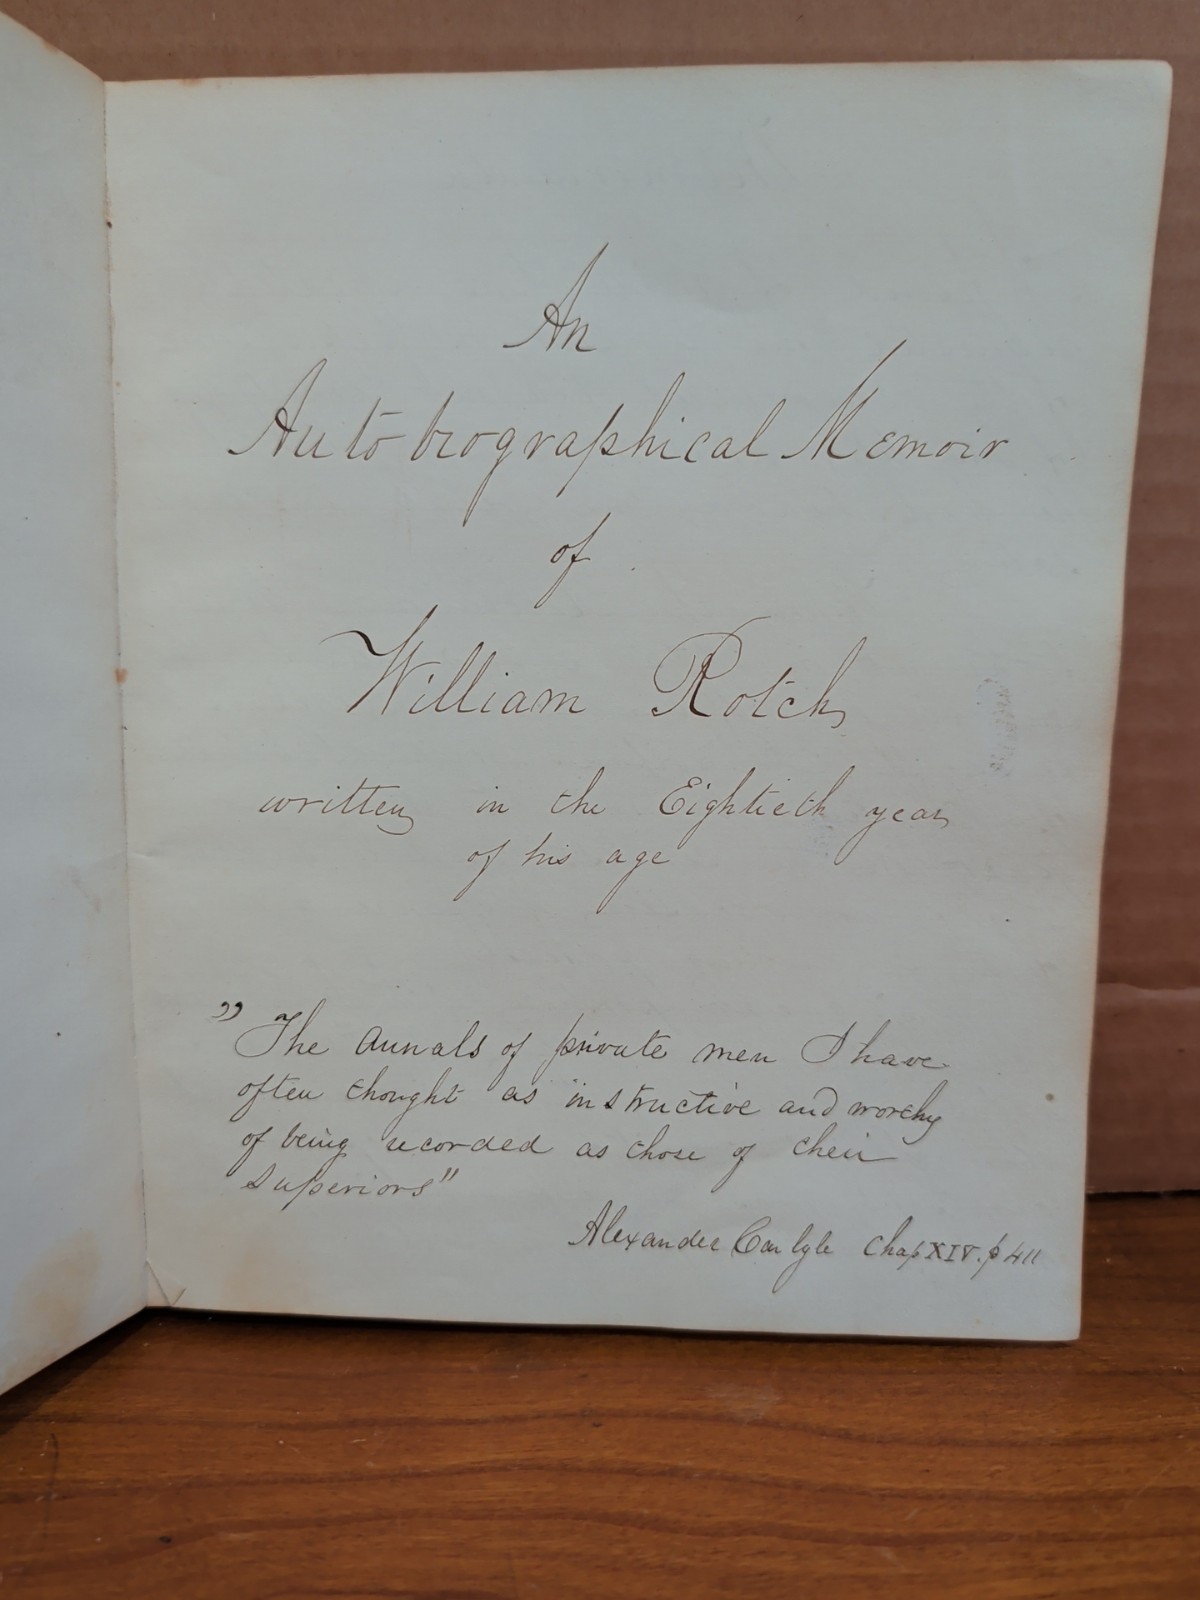 An
Autobiographical Memoir
of
William Rotch
written in the Eightieth year
of his age
"The annals of private men I have
often thought as instructive and worthy
of being recorded as those of their
superiors"
Alexander Carlyle Chap XIV. p 411